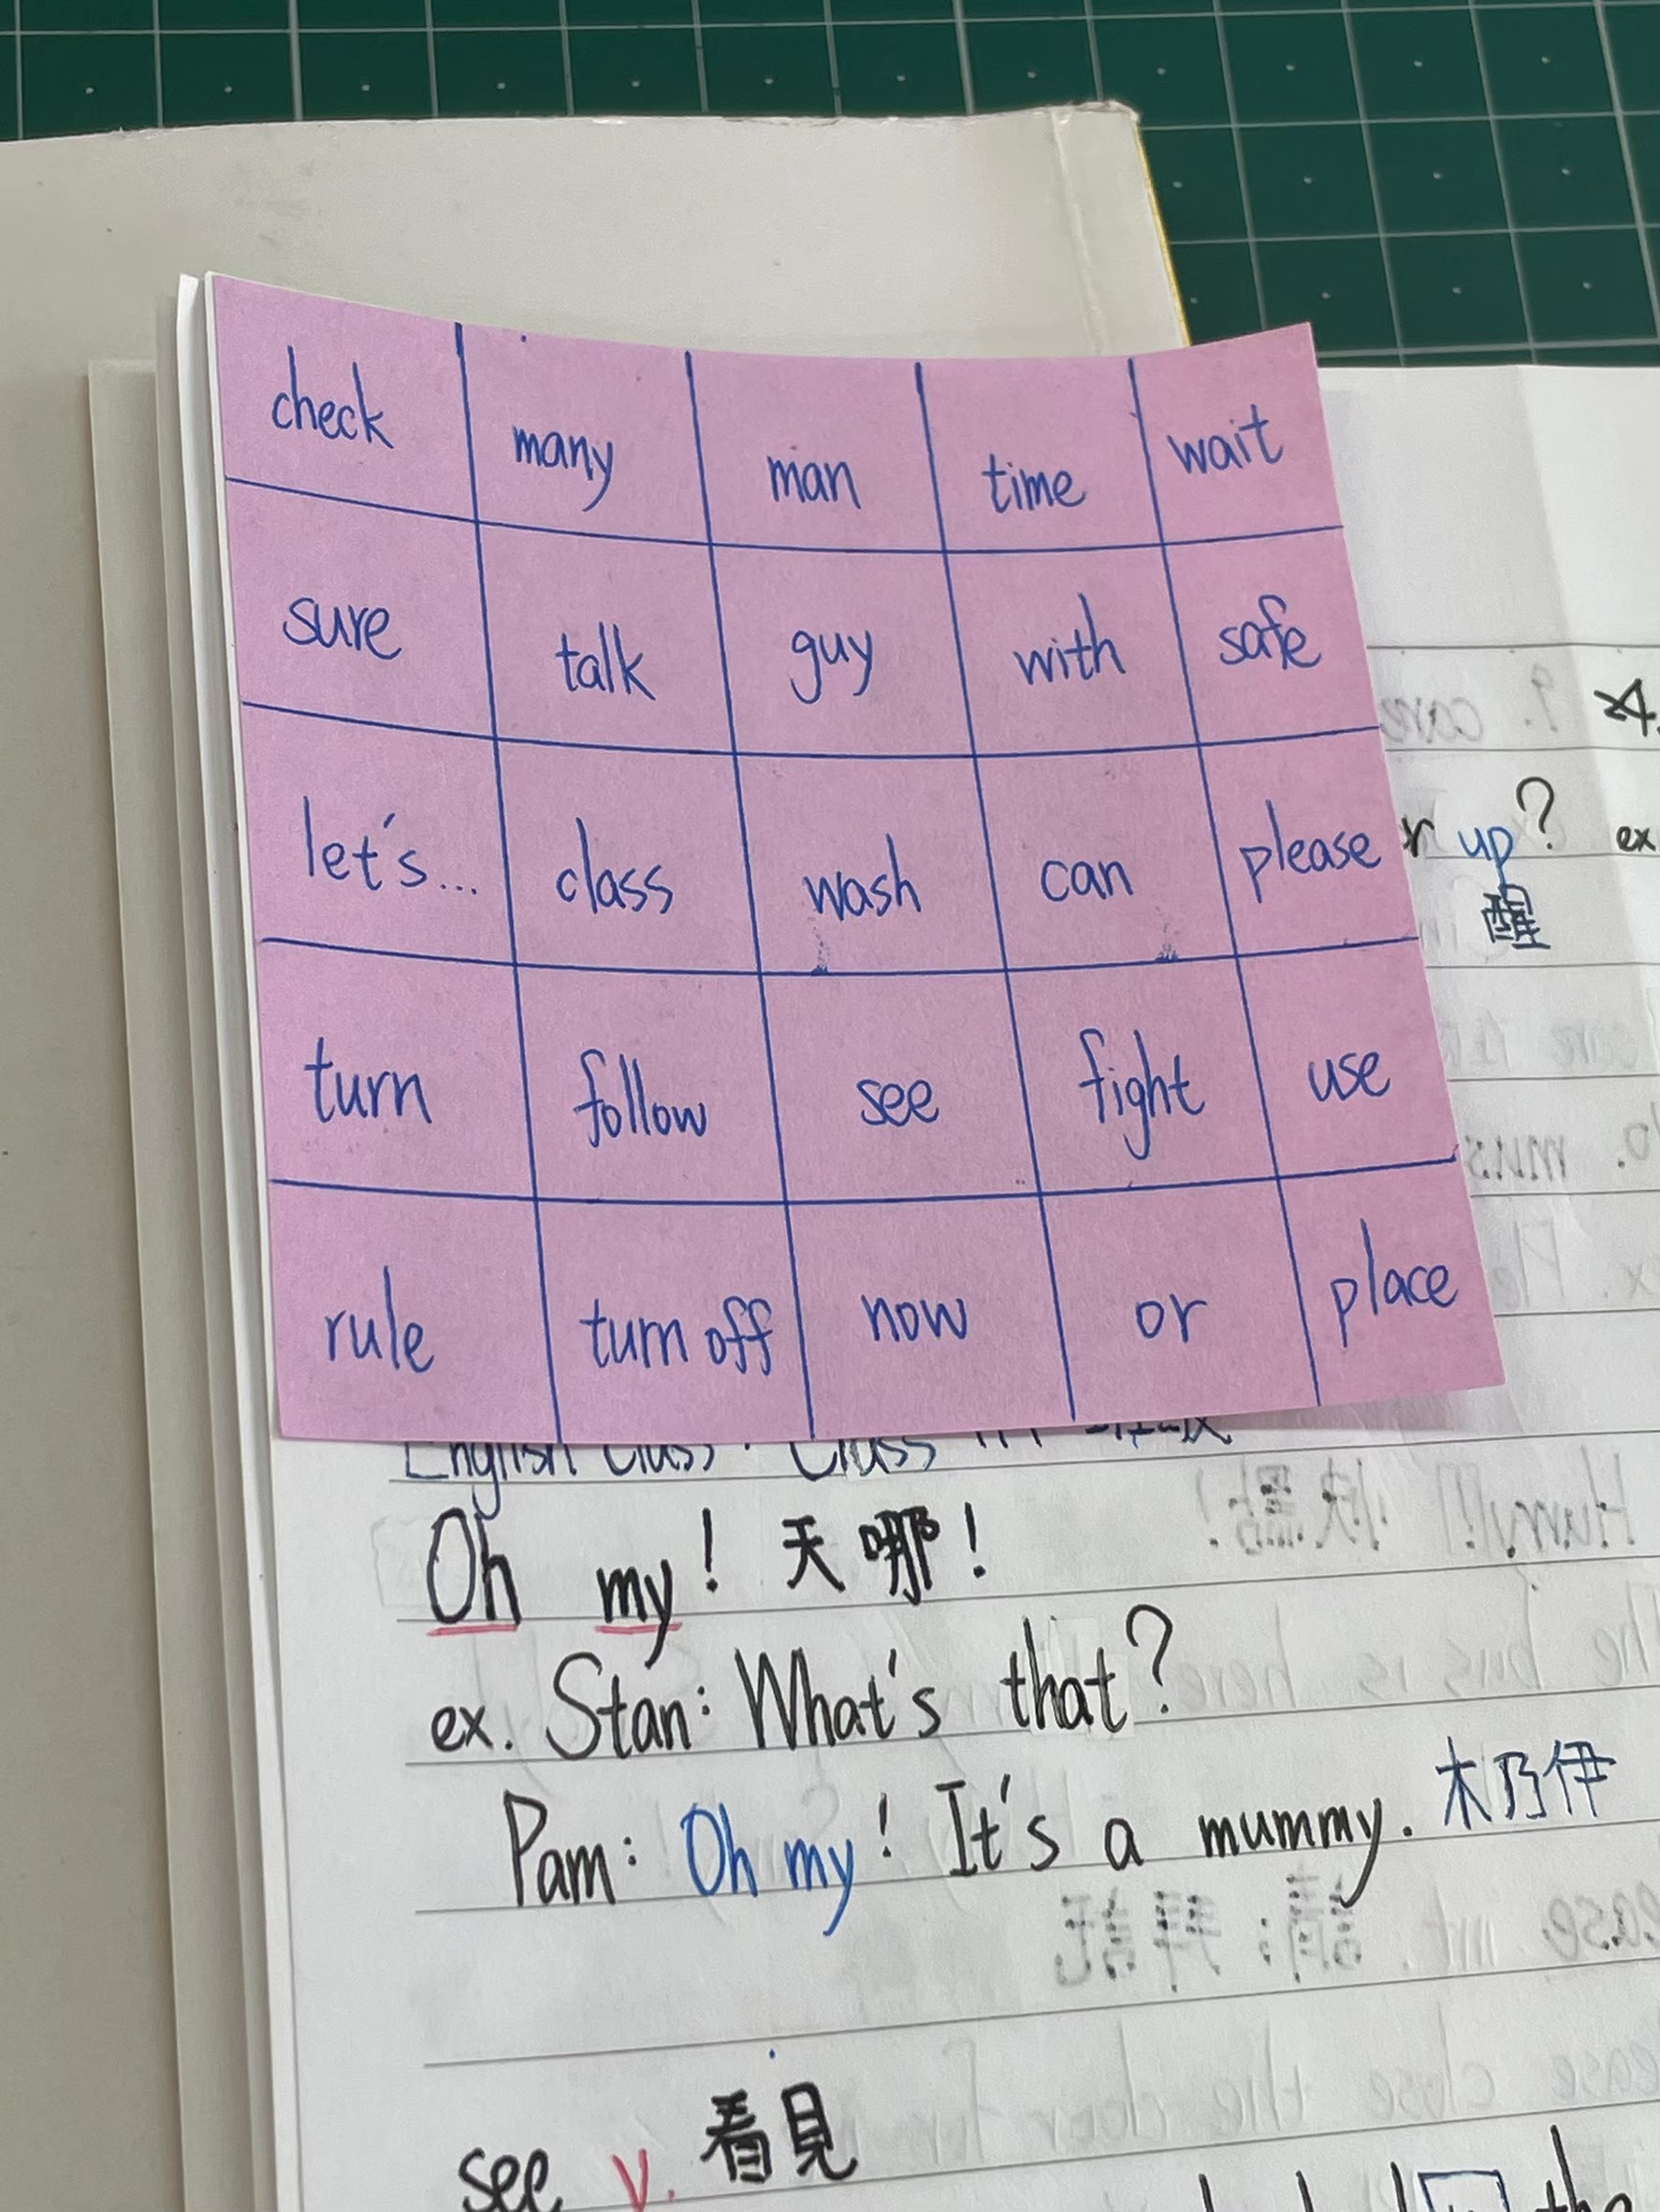 check many man time wait
sure talk guy with safe
let's... class wash can please
turn follow see fight use
rule turn off now or place
up?
ex
醒
English class
Oh my! 天哪!
ex. Stan: What's that?
Pam: Oh my! It's a mummy. 木乃伊
see v. 看見